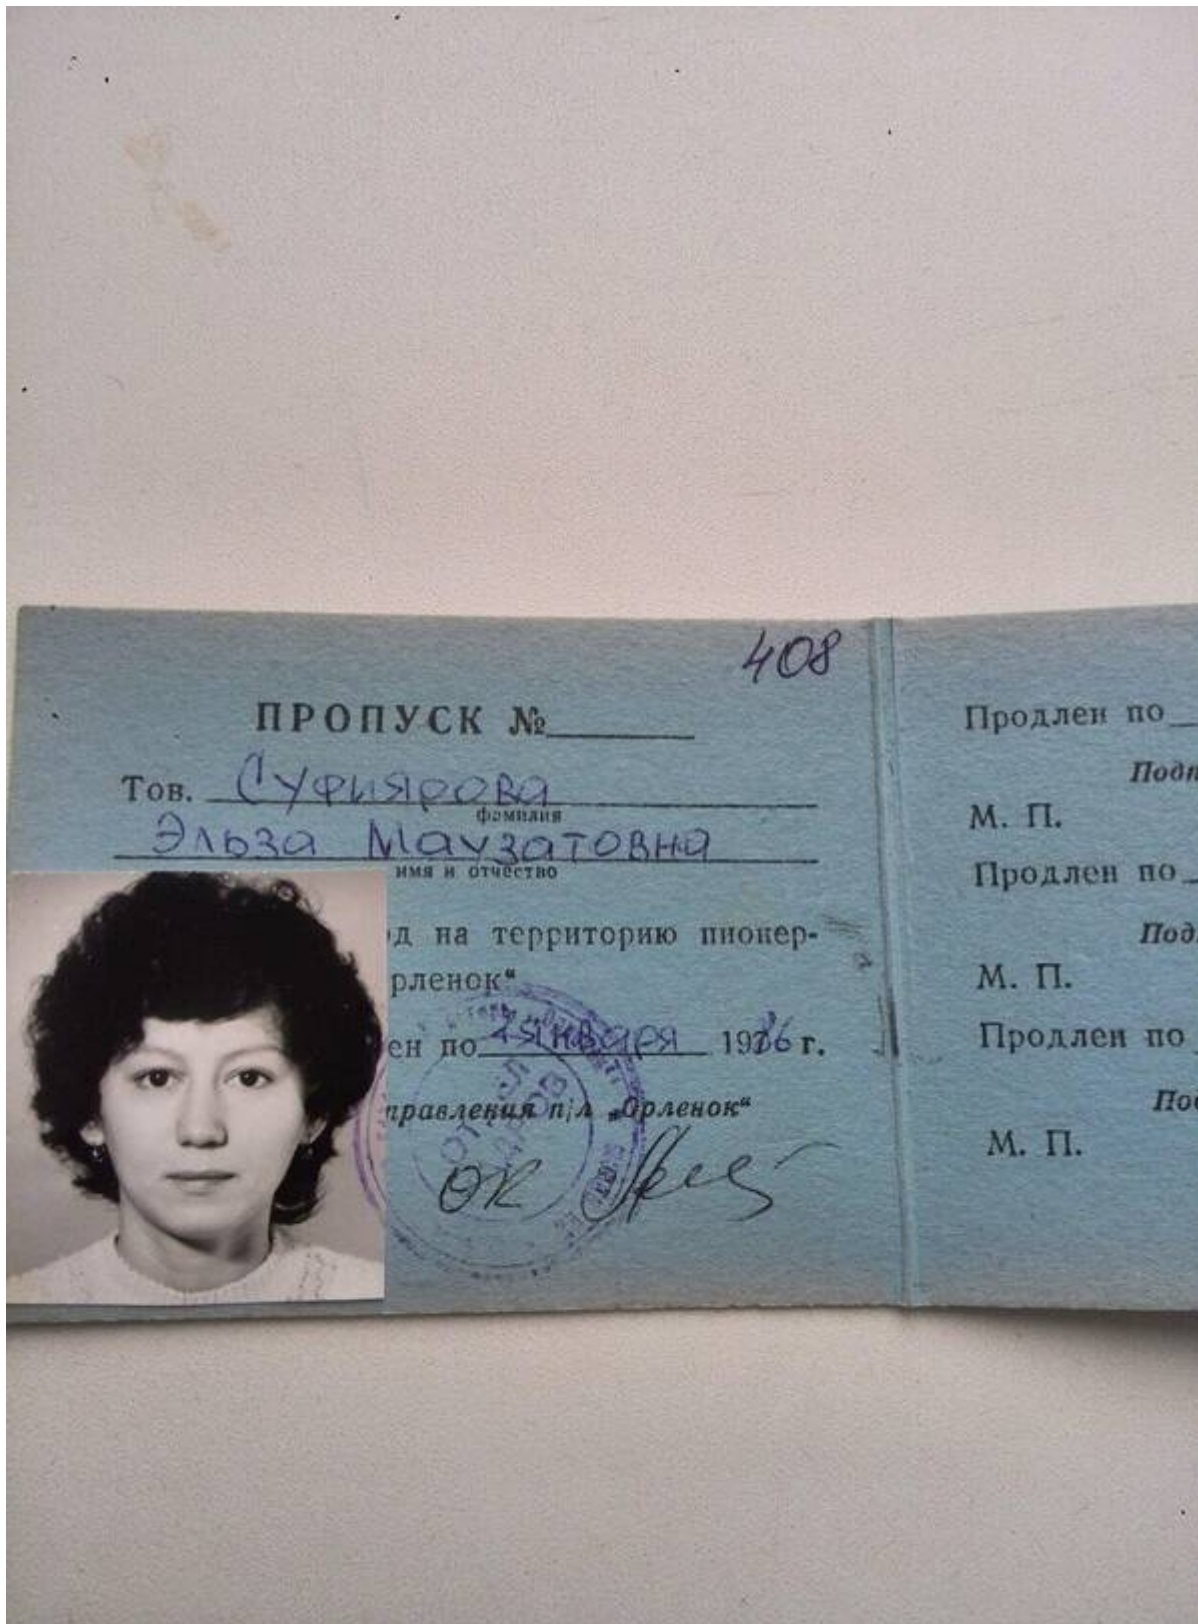 408
ПРОПУСК №
Тов. Суфиярова
фамилия
Эльза Маузатовна
имя и отчество
д на территорию пионер-
рленок“
ен по января 1986 г.
правления п/л „Орленок“
ОК
Продлен по
Подп
М. П.
Продлен по
Под
М. П.
Продлен по
По
М. П.